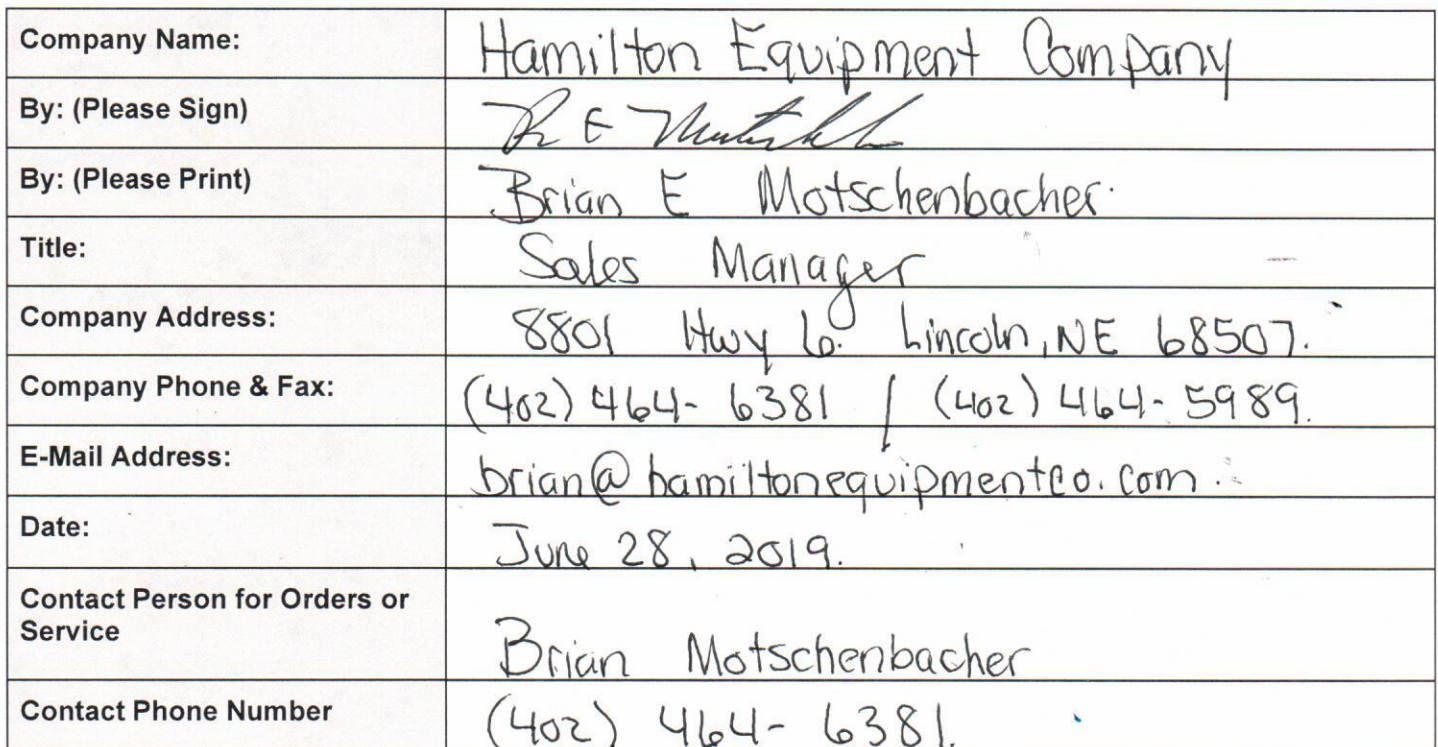 Company Name: Hamilton Equipment Company
By: (Please Sign)
By: (Please Print) Brian E Motschenbacher
Title: Sales Manager
Company Address: 8801 Hwy 6. Lincoln, NE 68507.
Company Phone & Fax: (402) 464-6381 / (402) 464-5989.
E-Mail Address: brian@hamiltonequipmentco.com.
Date: June 28, 2019.
Contact Person for Orders or
Service Brian Motschenbacher
Contact Phone Number (402) 464-6381.